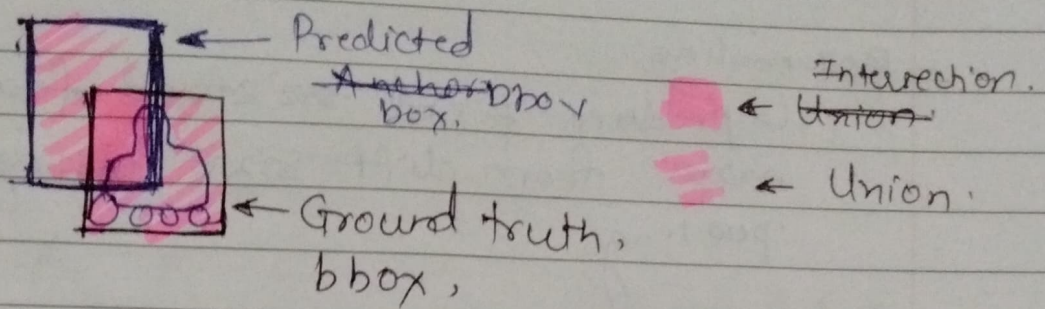 Predicted
Anchor bbox
box.
Intersection.
Union
Union.
Ground truth,
bbox,